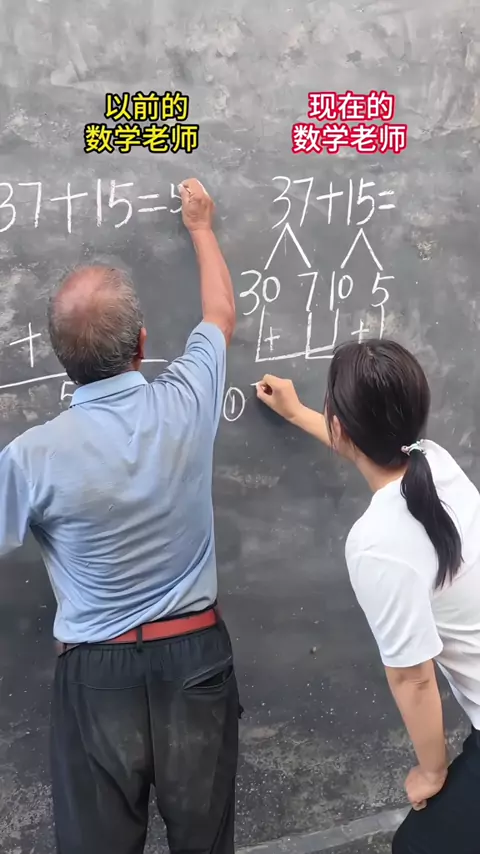 以前的
数学老师
现在的
数学老师
37+15=5
+
5
37+15=
30 7 10 5
+ +
①